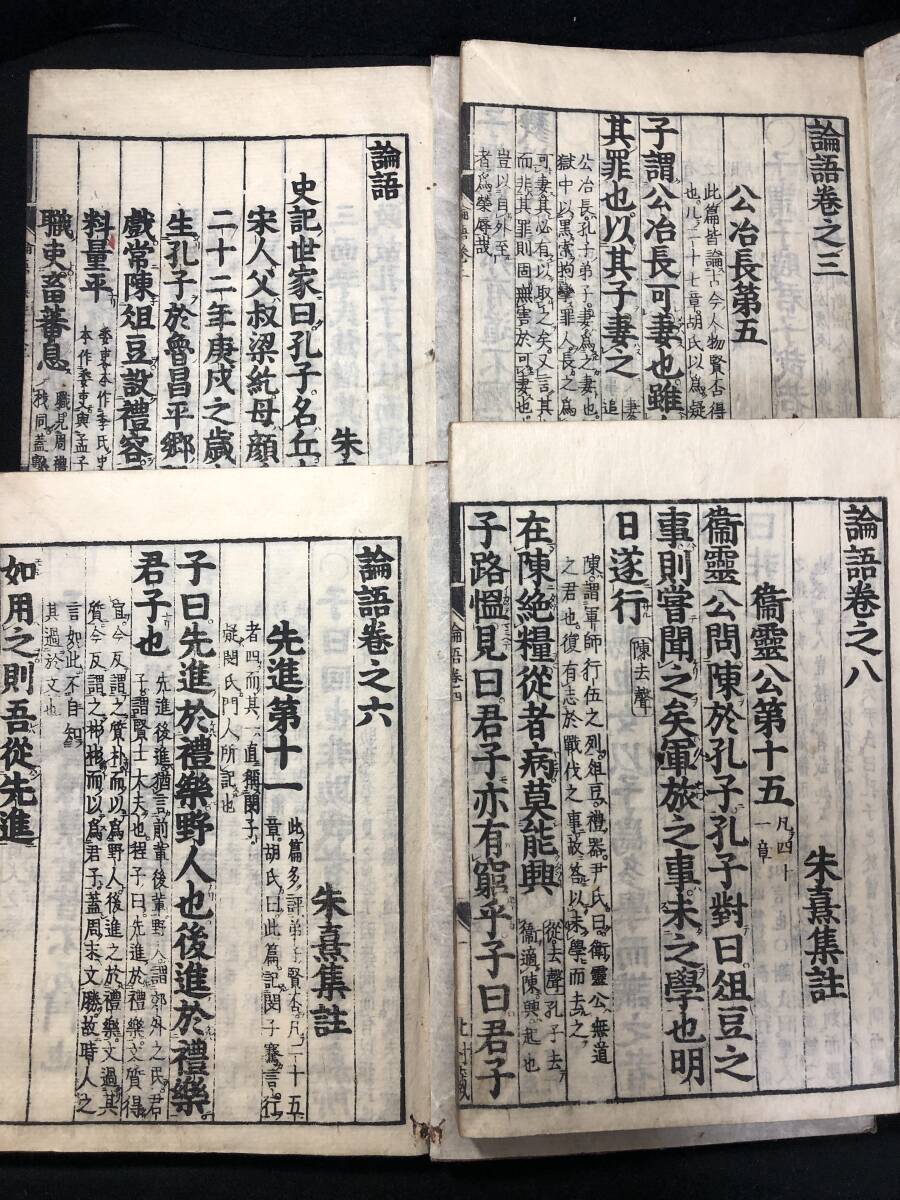 論語卷之三
公冶長第五
此篇皆論古今人物賢否得
也凡二十七章胡氏以爲疑
子謂公冶長可妻也雖
其罪也以其子妻之
公冶長孔子弟子妻爲之妻也
獄中以黑索拘攣罪人長之爲
可妻其必有以取之矣又言其
而非其罪則固無害於可妻也
豈以自外至
者爲榮辱哉
論語
朱
史記世家曰孔子名丘
宋人父叔梁紇母顏
二十二年庚戌之歲
生孔子於魯昌平鄉
戲常陳俎豆設禮容
料量平
委吏本作季氏史
本作委吏與孟子
職吏畜蕃息
職見周禮
論語卷之八
朱熹集註
衞靈公第十五
凡四十
一章
衞靈公問陳於孔子孔子對曰俎豆之
事則嘗聞之矣軍旅之事未之學也明
日遂行
陳去聲
陳謂軍師行伍之列俎豆禮器尹氏曰衛靈公無道
之君也復有志於戰伐之事故答以未學而去之
在陳絕糧從者病莫能興
從去聲孔子去
衞適陳興起也
子路慍見曰君子亦有窮乎子曰君子
論語卷四
論語卷之六
朱熹集註
先進第十一
此篇多評弟子賢否凡二十五
章胡氏曰此篇記閔子騫言行
者四而其一直稱閔子
疑閔氏門人所記也
子曰先進於禮樂野人也後進於禮樂
君子也
先進後進猶言前輩後輩野人謂郊外之民君
子謂賢士大夫也程子曰先進於禮樂文質得
宜今反謂之質朴而以爲野人後進之於禮樂文過其
質今反謂之彬彬而以爲君子蓋周末文勝故時人之
言如此不自知
其過於文也
如用之則吾從先進